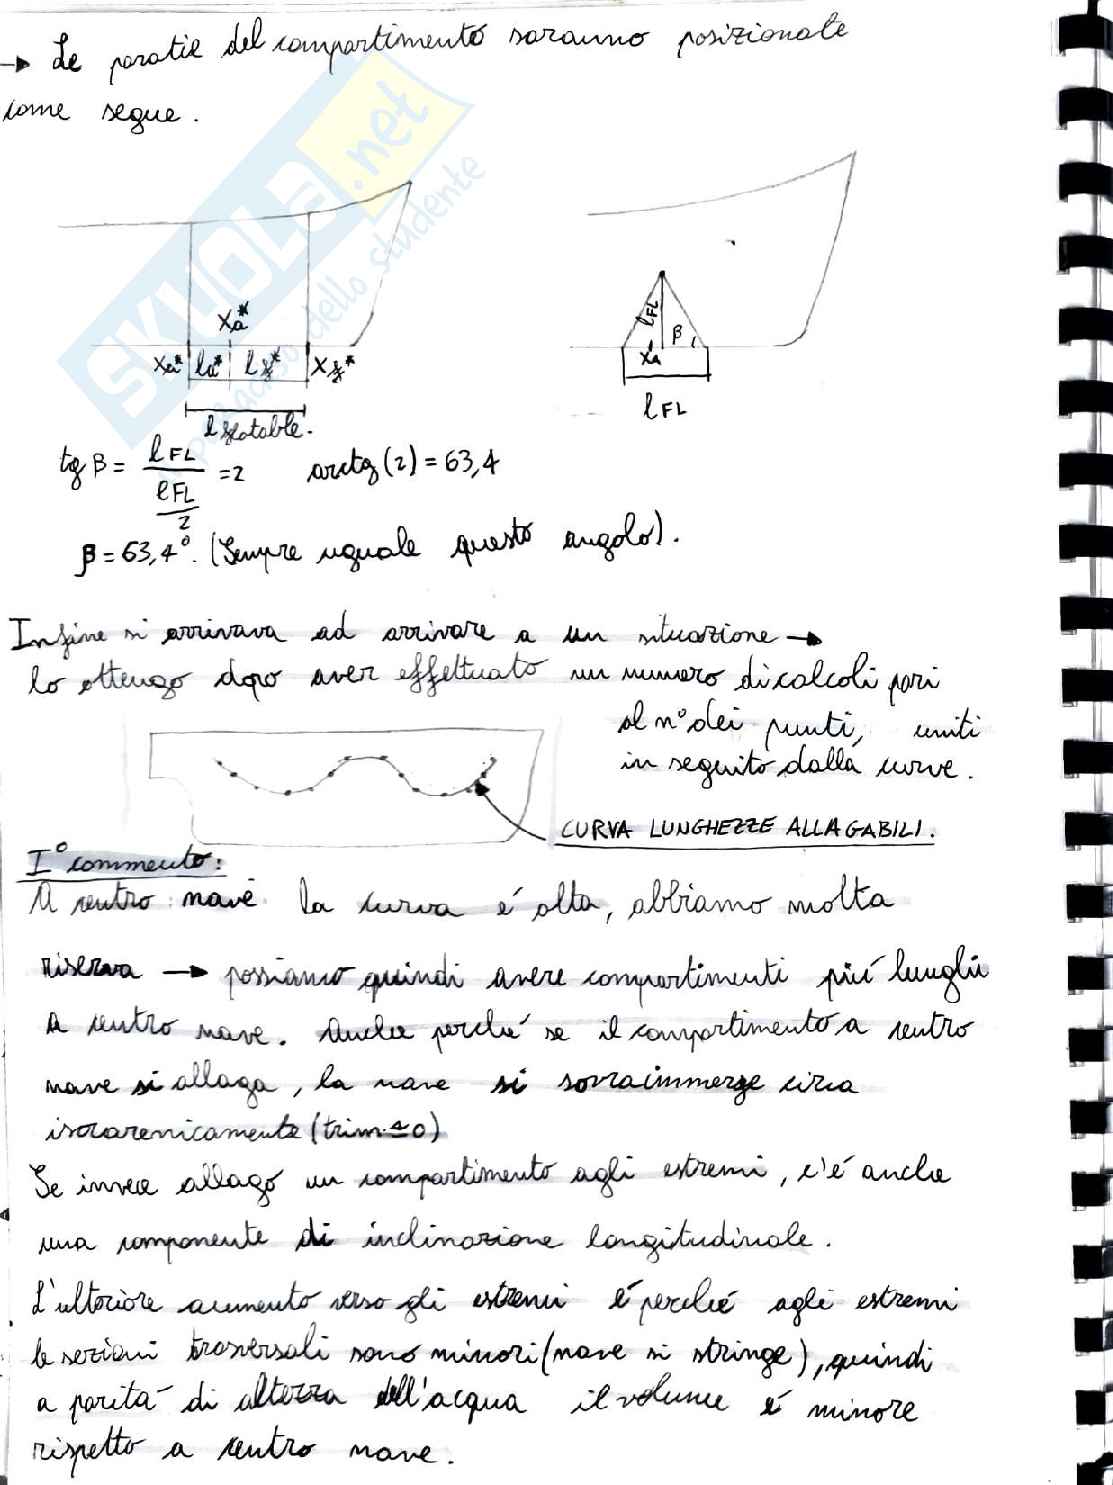 → Le paratie del compartimento saranno posizionate
come segue.
SKUOLA.net
dello studente
Xa*
Xa* la* lf* Xf*
l flotable.
lFL
β
Xa
lFL
tg β = lFL / (lFL/2) = 2 arctg(2) = 63,4
β = 63,4°. (Sempre uguale questo angolo).
Infine si arrivava ad arrivare a un situazione →
lo ottengo dopo aver effettuato un numero di calcoli pari
al n° dei punti, uniti
in seguito dalla curve.
CURVA LUNGHEZZE ALLAGABILI.
I° commento:
A centro nave la curva é alta, abbiamo molta
riserva → possiamo quindi avere compartimenti piú lunghi
a centro nave. Anche perché se il compartimento a centro
nave si allaga, la nave si sovraimmerge circa
isocarenicamente (trim ≃ 0)
Se invece allago un compartimento agli estremi, c'é anche
una componente di inclinazione longitudinale.
L'ulteriore aumento verso gli estremi é perché agli estremi
le sezioni trasversali sono minori (nave si stringe), quindi
a parità di altezza dell'acqua il volume é minore
rispetto a centro nave.